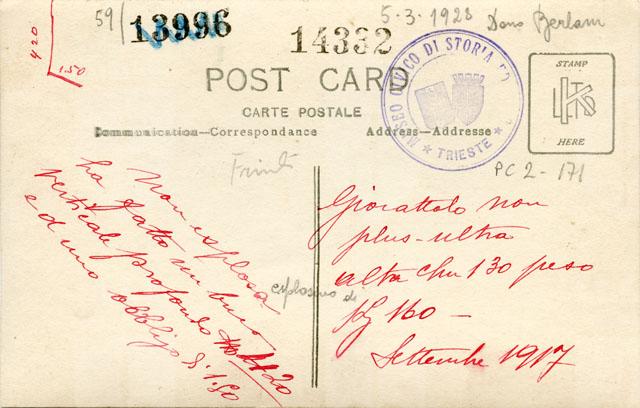 59/
13996
5.3.1923 Dono Berlam
14332
4.20
1.50
POST CARD
CARTE POSTALE
Communication—Correspondance
Address—Addresse
MUSEO CIVICO DI STORIA ED
★ TRIESTE ★
STAMP
HERE
PC 2-171
non esplosa
ha fatto un buco
verticale profondo 4.20
ed uno obbliquo di 1.50
Giocattolo non
plus-ultra
alta cm 130 peso
esplosivo di
Kg 160 —
Settembre 1917